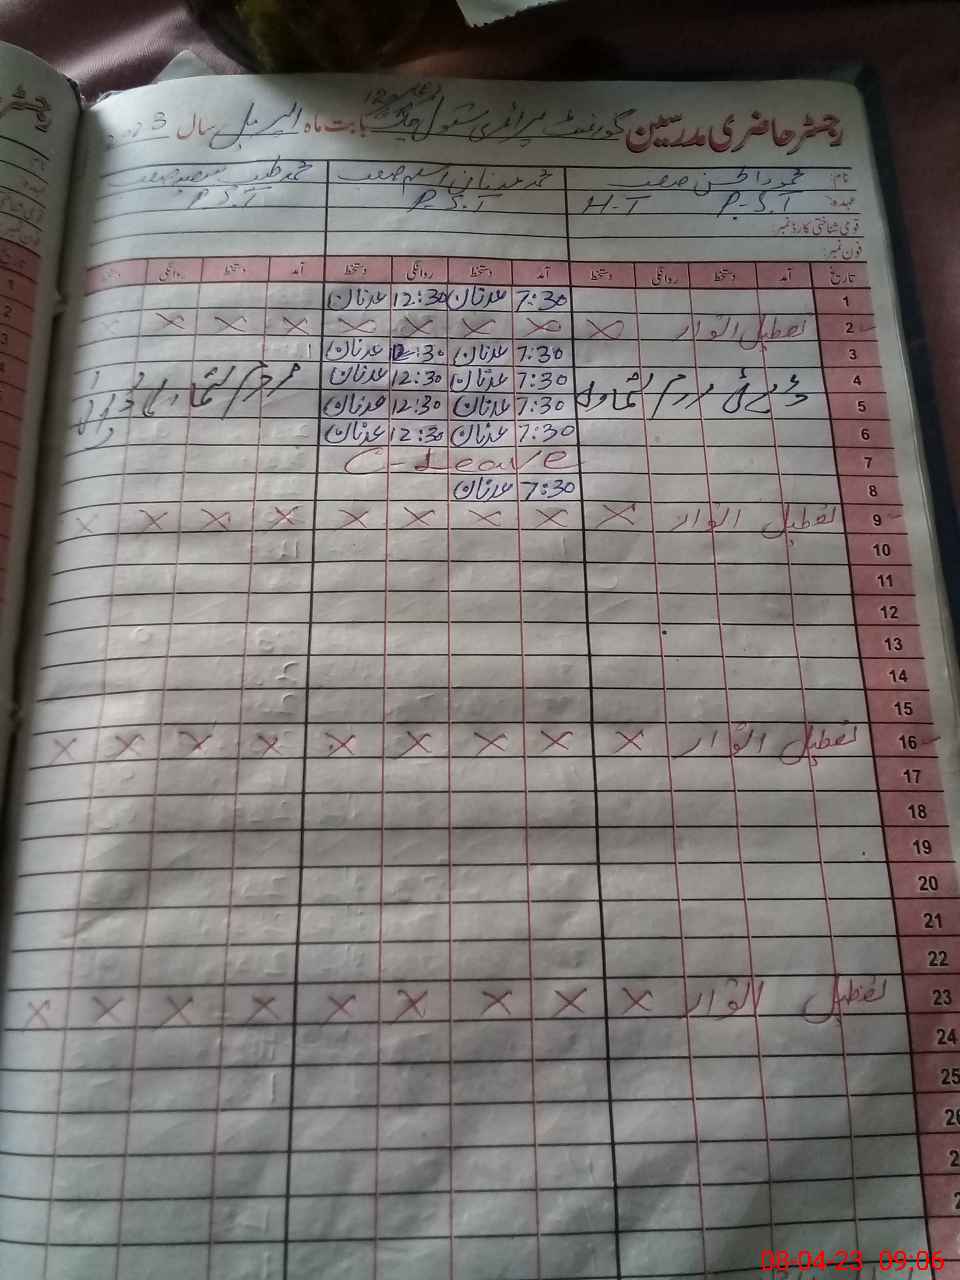 رجسٹر حاضری مدرسین گورنمنٹ پرائمری سکول بابت ماہ اپریل سال 2023
نام: محمود الحسن صاحب محمد عدنان اسلم صاحب محمد طیب صاحب
عہدہ: P.S.T H-T P-S.T P.S.T
قومی شناختی کارڈ نمبر:
فون نمبر:
تاریخ آمد دستخط روانگی دستخط آمد دستخط روانگی دستخط آمد دستخط روانگی دستخط
1 7:30 عدنان 12:30 عدنان
2 تعطیل اتوار × × × × × × × × ×
3 7:30 عدنان 12:30 عدنان
4 7:30 عدنان 12:30 عدنان
ڈیوٹی مردم شماری مردم شماری ڈیوٹی
5 7:30 عدنان 12:30 عدنان
6 7:30 عدنان 12:30 عدنان
7 C-Leave
8 7:30 عدنان
9 تعطیل اتوار × × × × × × × × ×
10
11
12
13
14
15
16 تعطیل اتوار × × × × × × × × ×
17
18
19
20
21
22
23 تعطیل اتوار × × × × × × × × ×
24
25
08-04-23 09:06